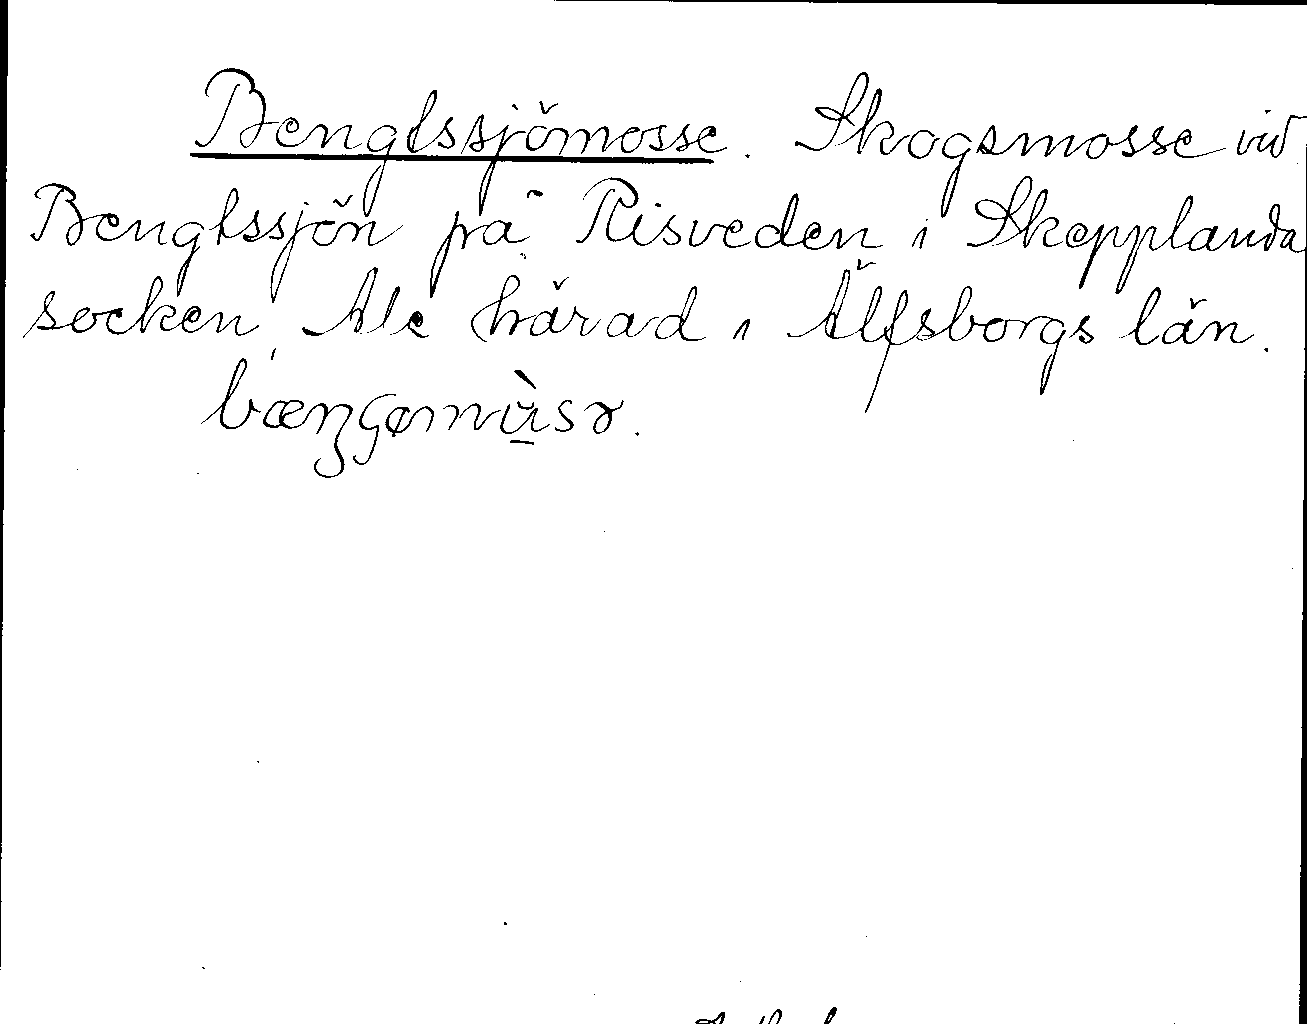 Bengtssjömosse. Skogsmosse vid
Bengtssjön på Risveden i Skepplanda
socken, Ale härad i Älfsborgs län.